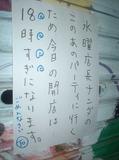 水曜店長ナンダの
このあのパーティに行く
ため今日の開店は
18時すぎになります。
ごめんなさい